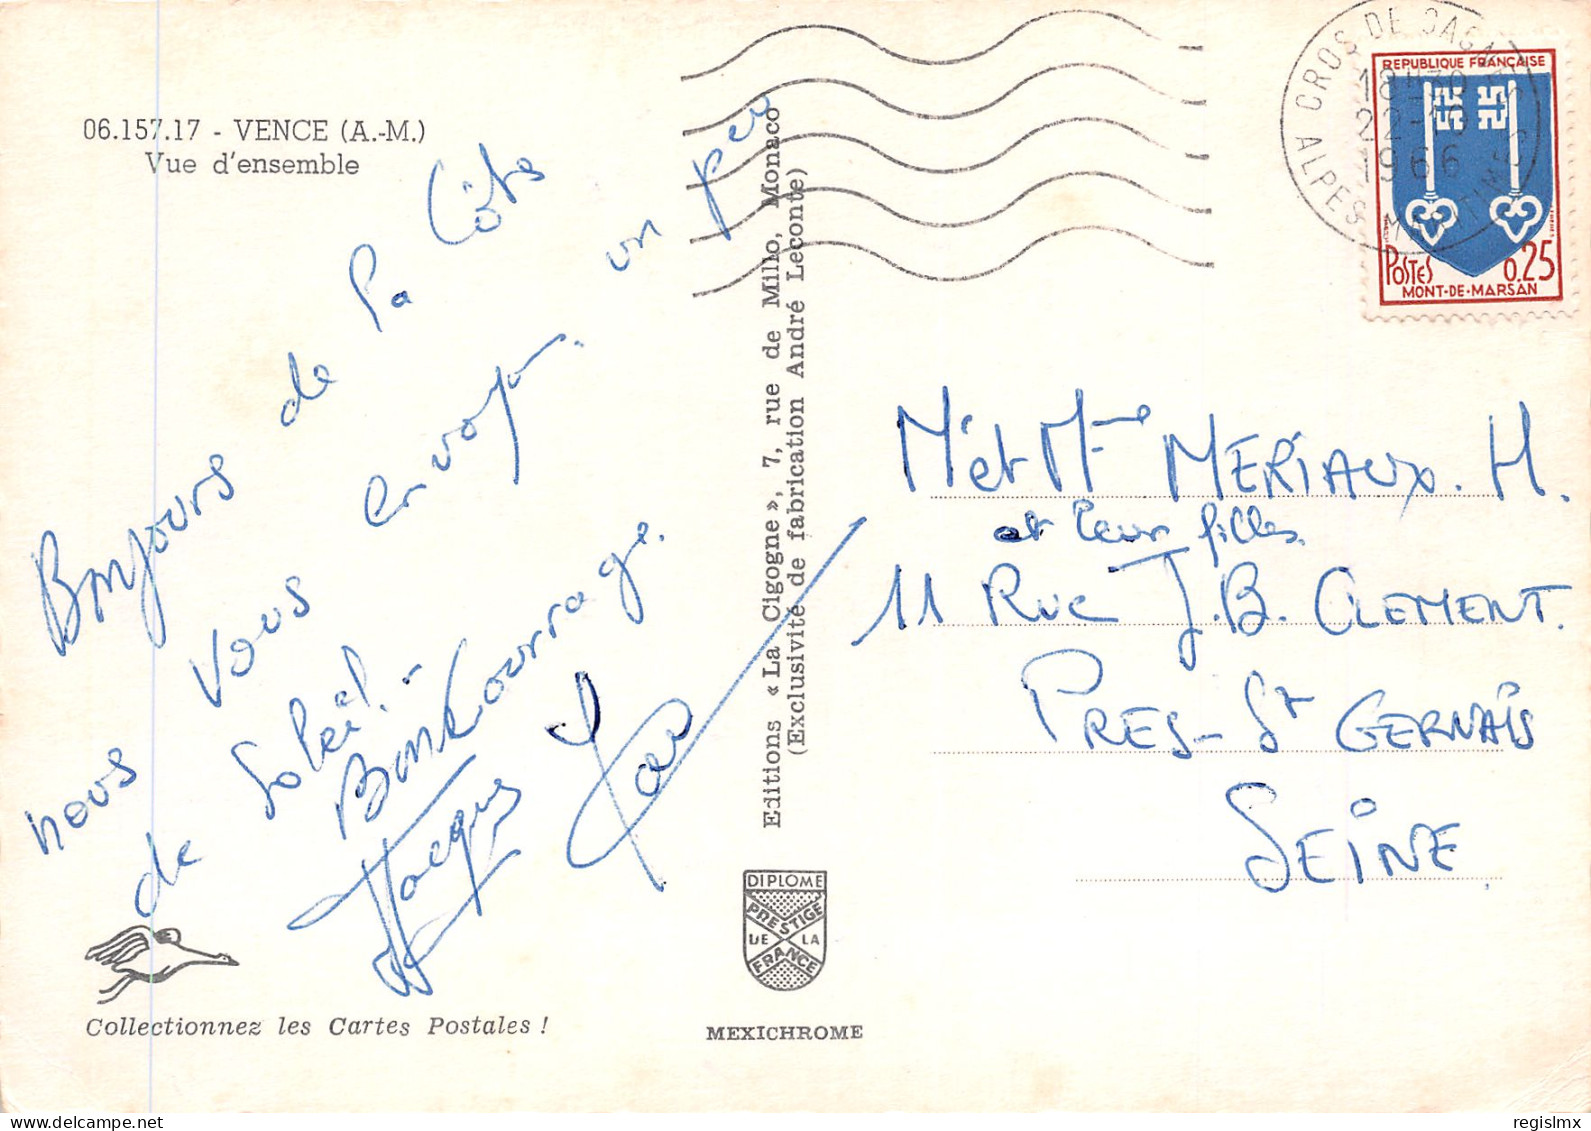 06.157.17 - VENCE (A.-M.)
Vue d'ensemble
Bonjours de la Côte
nous vous envoyon un peu
de Soleil.-
Bon Courrage.
Jacques
Collectionnez les Cartes Postales !
Editions « La Cigogne », 7, rue de Millo, Monaco
(Exclusivité de fabrication André Leconte)
DIPLOME
PRESTIGE
DE LA
FRANCE
MEXICHROME
CROS DE CAGNES
18H30
22-10
1966
ALPES MARITIMES
REPUBLIQUE FRANÇAISE
POSTES 0.25
MONT-DE-MARSAN
Mr et Mme MERIAUX. H.
et leur filles
11 Rue J.B. CLEMENT.
PRES-St GERVAIS
SEINE
regislmx